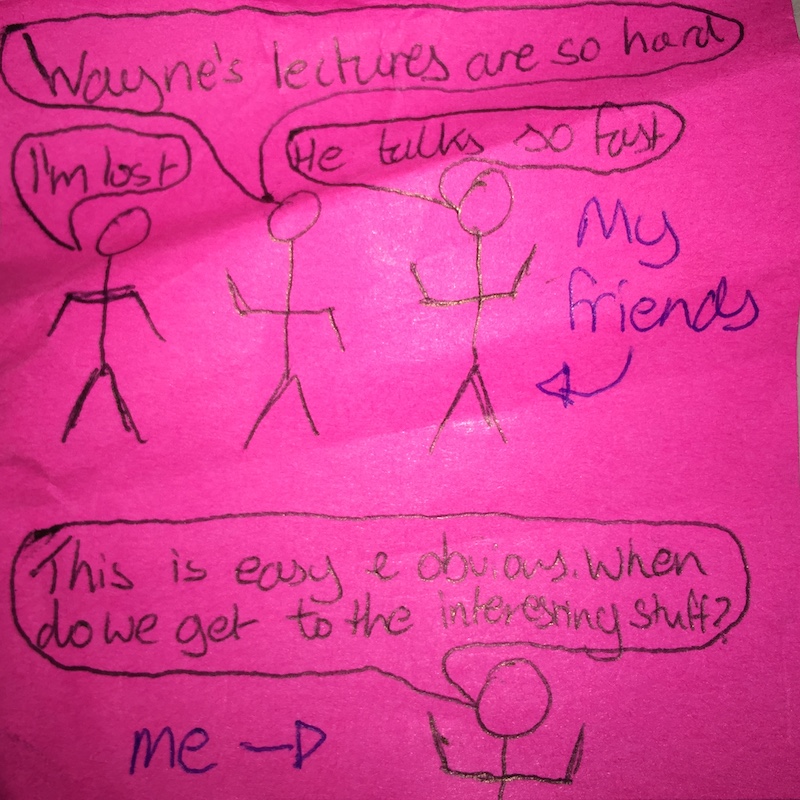 Wayne's lectures are so hard
I'm lost
He talks so fast
My
friends
This is easy & obvious. When
do we get to the interesting stuff?
me